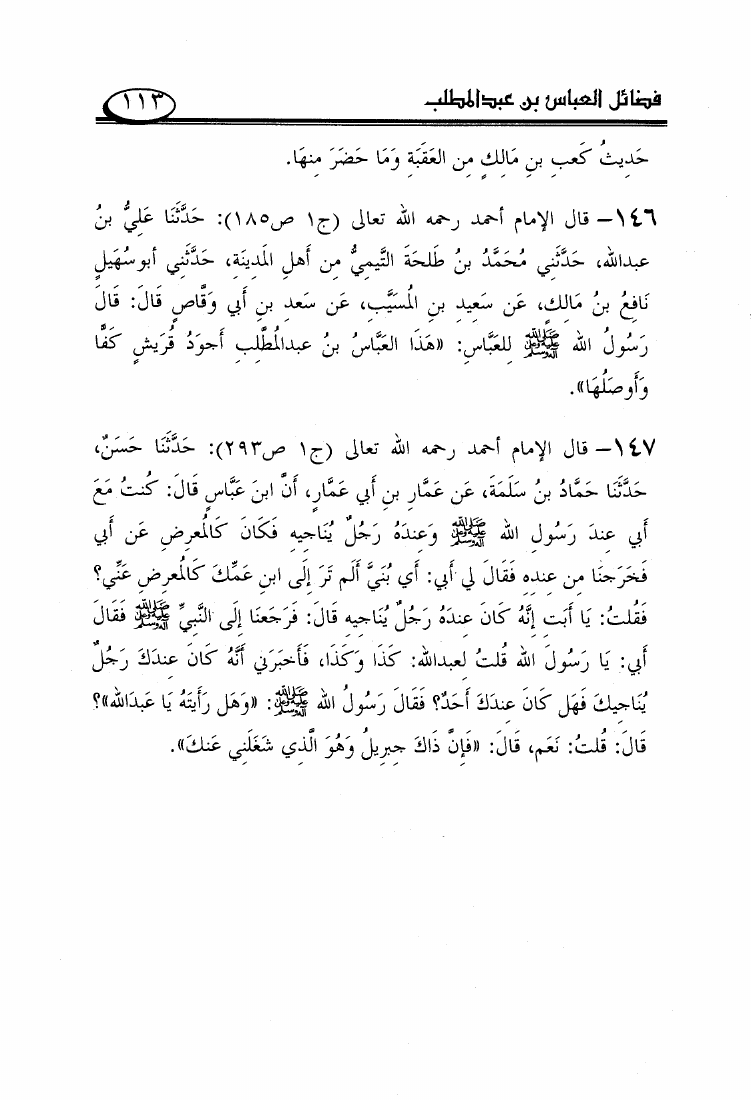 فضائل العباس بن عبدالمطلب ١١٣
حَدِيثُ كَعبِ بنِ مَالِكٍ مِن العَقَبَةِ وَمَا حَضَرَ مِنهَا.
١٤٦- قال الإمام أحمد رحمه الله تعالى (ج١ ص١٨٥): حَدَّثَنَا عَلِيُّ بنُ
عبدالله، حَدَّثَنِي مُحَمَّدُ بنُ طَلحَةَ التَّيمِيُّ مِن أَهلِ المَدِينَةِ، حَدَّثَنِي أبوسُهَيلٍ
نَافِعُ بنُ مَالِكٍ، عَن سَعِيدِ بنِ المُسَيَّبِ، عَن سَعدِ بنِ أَبِي وَقَّاصٍ قَالَ: قَالَ
رَسُولُ الله ﷺ لِلعَبَّاسِ: «هَذَا العَبَّاسُ بنُ عبدالمُطَّلِبِ أَجوَدُ قُرَيشٍ كَفًّا
وَأَوصَلُهَا».
١٤٧- قال الإمام أحمد رحمه الله تعالى (ج١ ص٢٩٣): حَدَّثَنَا حَسَنٌ،
حَدَّثَنَا حَمَّادُ بنُ سَلَمَةَ، عَن عَمَّارِ بنِ أَبِي عَمَّارٍ، أَنَّ ابنَ عَبَّاسٍ قَالَ: كُنتُ مَعَ
أَبِي عِندَ رَسُولِ الله ﷺ وَعِندَهُ رَجُلٌ يُنَاجِيهِ فَكَانَ كَالمُعرِضِ عَن أَبِي
فَخَرَجنَا مِن عِندِهِ فَقَالَ لِي أَبِي: أَي بُنَيَّ أَلَم تَرَ إِلَى ابنِ عَمِّكَ كَالمُعرِضِ عَنِّي؟
فَقُلتُ: يَا أَبَتِ إِنَّهُ كَانَ عِندَهُ رَجُلٌ يُنَاجِيهِ قَالَ: فَرَجَعنَا إِلَى النَّبِيِّ ﷺ فَقَالَ
أَبِي: يَا رَسُولَ الله قُلتُ لِعبدِالله: كَذَا وَكَذَا، فَأَخبَرَنِي أَنَّهُ كَانَ عِندَكَ رَجُلٌ
يُنَاجِيكَ فَهَل كَانَ عِندَكَ أَحَدٌ؟ فَقَالَ رَسُولُ الله ﷺ: «وَهَل رَأَيتَهُ يَا عَبدَالله»؟
قَالَ: قُلتُ: نَعَم، قَالَ: «فَإِنَّ ذَاكَ جِبرِيلُ وَهُوَ الَّذِي شَغَلَنِي عَنكَ».